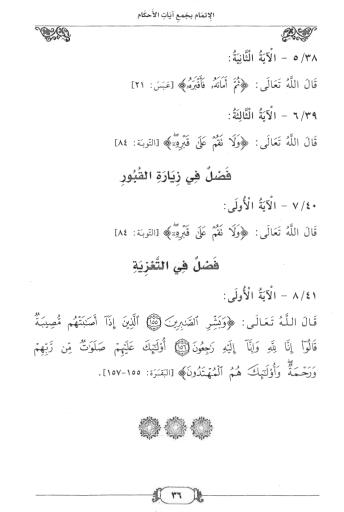 الإتمام بجمع آيات الأحكام
٥/٣٨ - الْآيَةُ الثَّانِيَةُ:
قَالَ اللَّهُ تَعَالَى: ﴿ثُمَّ أَمَاتَهُۥ فَأَقْبَرَهُۥ﴾ [عَبَسَ: ٢١]
٦/٣٩ - الْآيَةُ الثَّالِثَةُ:
قَالَ اللَّهُ تَعَالَى: ﴿وَلَا تَقُمْ عَلَىٰ قَبْرِهِۦٓ﴾ [التَّوبَة: ٨٤]
فَصْلٌ فِي زِيَارَةِ القُبُورِ
٧/٤٠ - الْآيَةُ الْأُولَى:
قَالَ اللَّهُ تَعَالَى: ﴿وَلَا تَقُمْ عَلَىٰ قَبْرِهِۦٓ﴾ [التَّوبَة: ٨٤]
فَصْلٌ فِي التَّعْزِيَةِ
٨/٤١ - الْآيَةُ الْأُولَى:
قَالَ اللَّهُ تَعَالَى: ﴿وَبَشِّرِ الصَّٰبِرِينَ ١٥٥ الَّذِينَ إِذَآ أَصَٰبَتْهُم مُّصِيبَةٌ
قَالُوٓا۟ إِنَّا لِلَّهِ وَإِنَّآ إِلَيْهِ رَٰجِعُونَ ١٥٦ أُو۟لَٰٓئِكَ عَلَيْهِمْ صَلَوَٰتٌ مِّن رَّبِّهِمْ
وَرَحْمَةٌ ۖ وَأُو۟لَٰٓئِكَ هُمُ الْمُهْتَدُونَ﴾ [البَقَرَة: ١٥٥-١٥٧].
٣٦